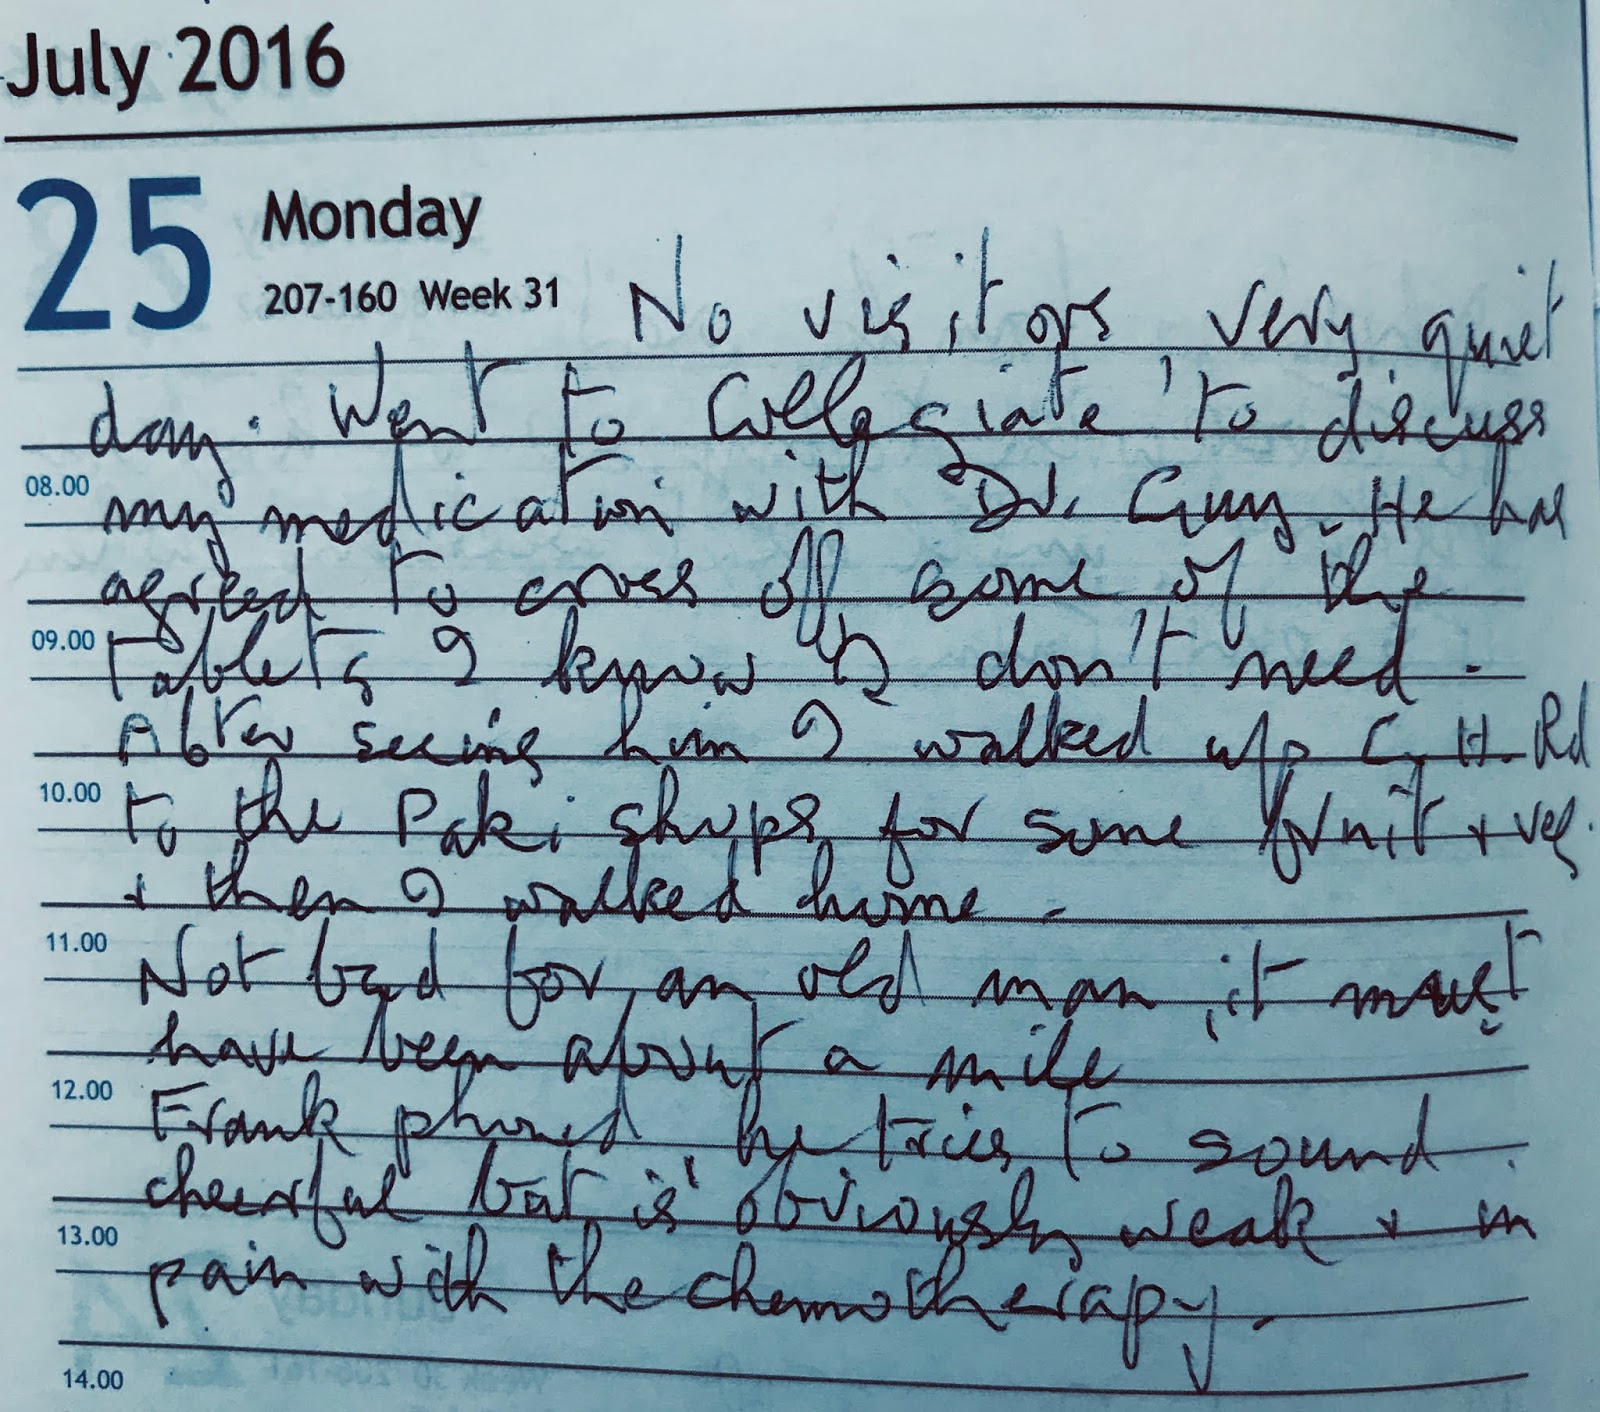 July 2016
25 Monday
207-160 Week 31 No visitors very quiet
day. Went to Collegiate to discuss
08.00 my medication with Dr. Guy. He has
agreed to cross off some of the
09.00 tablets I know I don't need.
After seeing him I walked up C. H. Rd
10.00 to the Paki shops for some fruit + veg.
+ then I walked home.
11.00 Not bad for an old man, it must
have been about a mile
12.00 Frank phoned he tries to sound
cheerful but is obviously weak + in
13.00 pain with the chemotherapy.
14.00